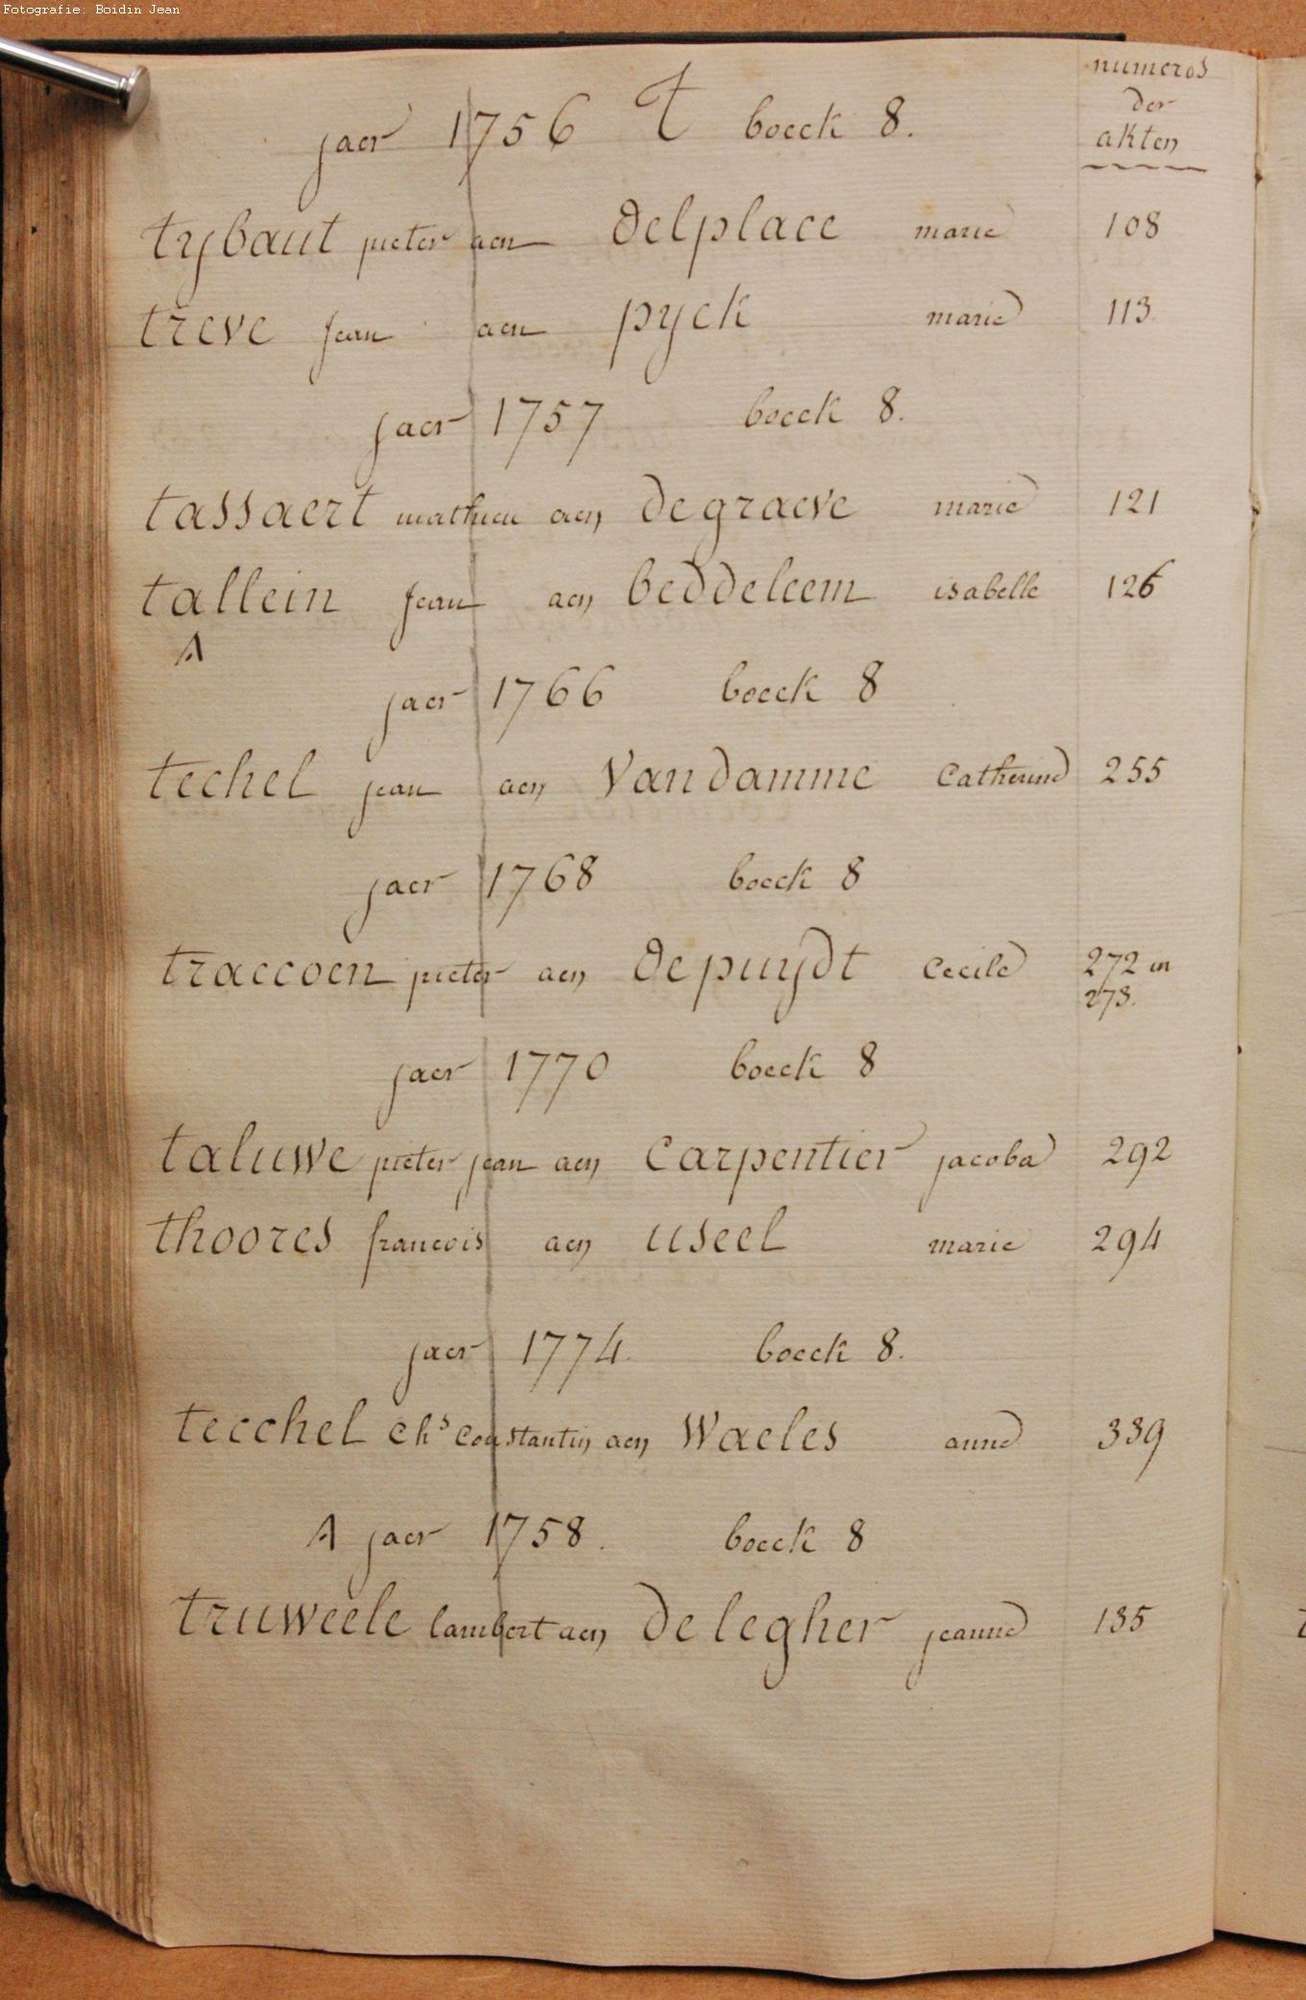 Fotografie: Boidin Jean
numeros
der
akten
jaer 1756 T boeck 8.
tybaut pieter aen delplace marie 108
treve jean aen pyck marie 113
jaer 1757 boeck 8.
tassaert mathieu aen degraeve marie 121
tallein jean aen beddeleem isabelle 126
A
jaer 1766 boeck 8
techel jean aen Vandamme Catherine 255
jaer 1768 boeck 8
traccoen pieter aen depuydt Cecile 272 en
273.
jaer 1770 boeck 8
taluwe pieter jean aen Carpentier jacoba 292
thoores francois aen useel marie 294
jaer 1774. boeck 8.
tecchel chs Constantin aen Waeles anne 339
A jaer 1758. boeck 8
truweele lambert aen delegher jeanne 135